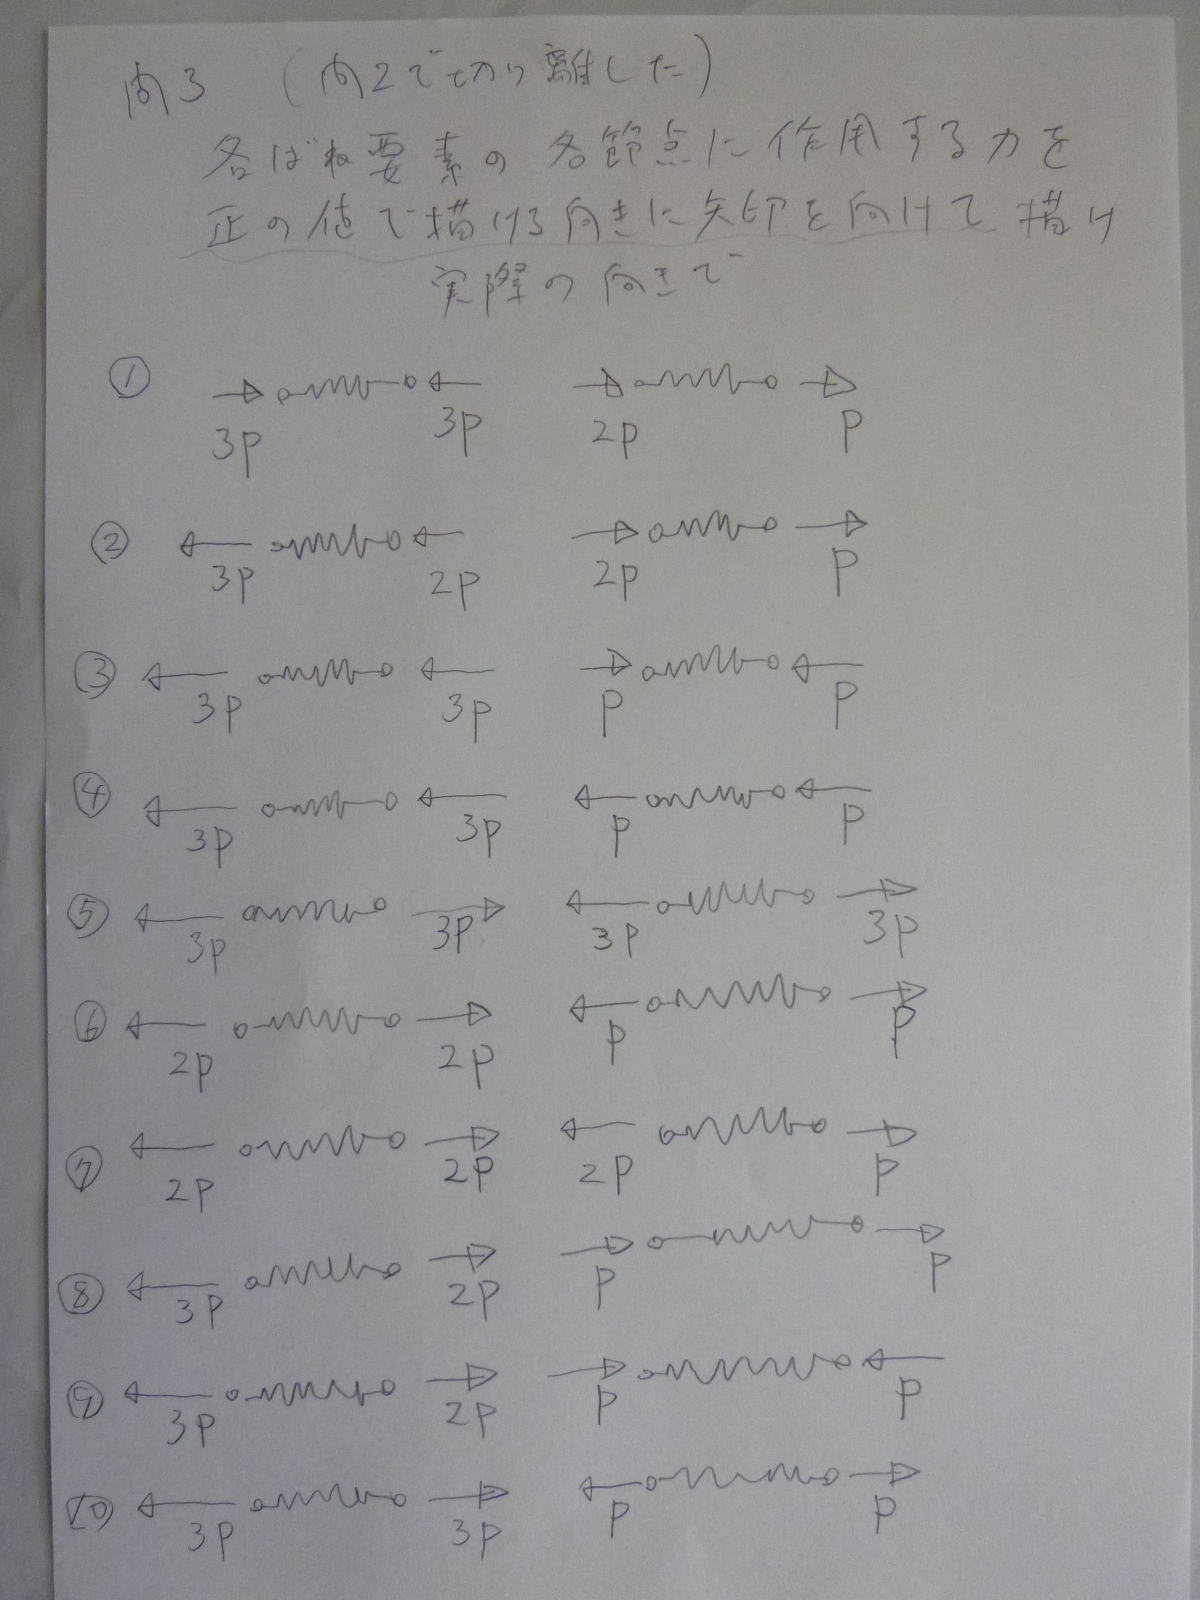 問3 (問2で切り離した)
各ばね要素の各節点に作用する力を
正の値で描ける向きに矢印を向けて描け
実際の向きで
① 3P 3P 2P P
② 3P 2P 2P P
③ 3P 3P P P
④ 3P 3P P P
⑤ 3P 3P 3P 3P
⑥ 2P 2P P P
⑦ 2P 2P 2P P
⑧ 3P 2P P P
⑨ 3P 2P P P
⑩ 3P 3P P P